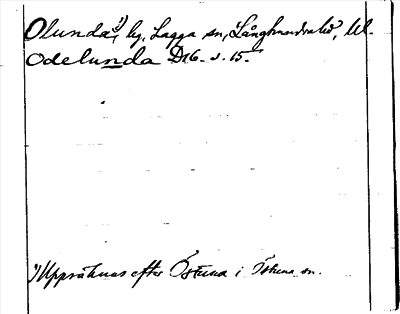 Olunda¹⁾, by, Lagga sn, Långhundra hd, Upl.
Odelunda D16 15.
¹⁾ Uppräknas efter Östuna i Östuna sn.